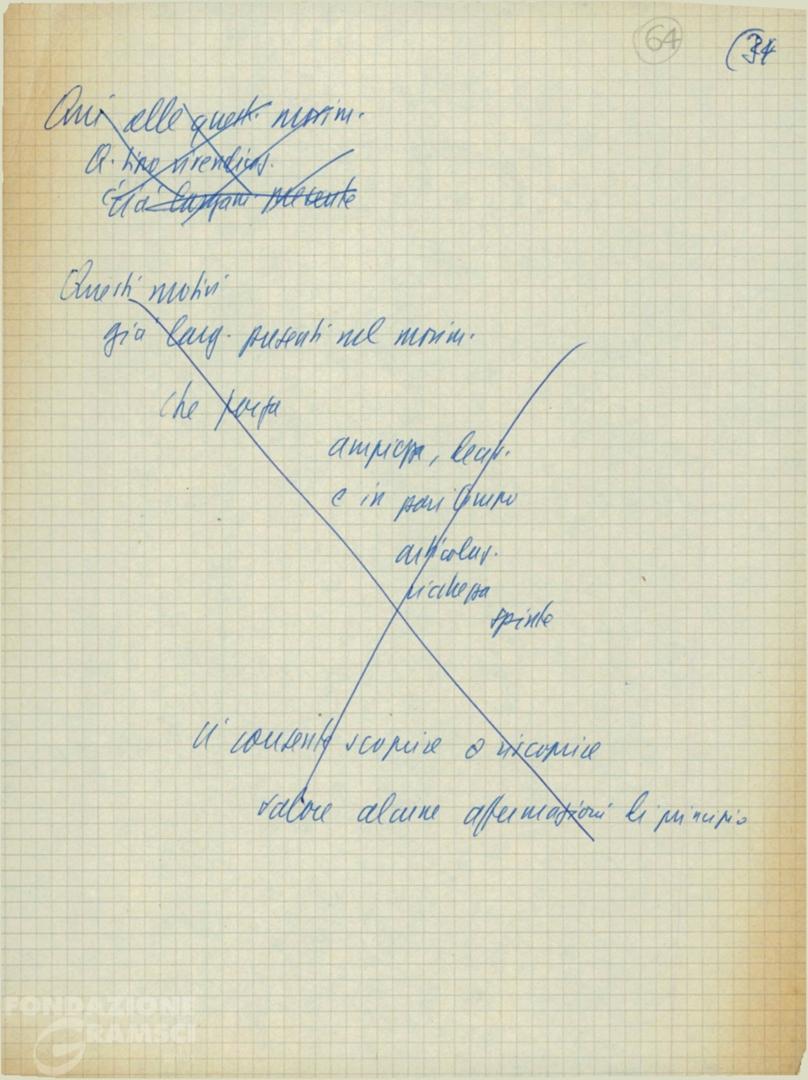 64
(34
Qui alle quest. movim.
Q. tipo rivendicaz.
Questi motivi
già larg. presenti nel movim.
che porta
ampiezza,
e in pari tempo
articolaz.
ricchezza
spinte
ci consente scoprire o riscoprire
valore alcune affermazioni di principio
FONDAZIONE
GRAMSCI